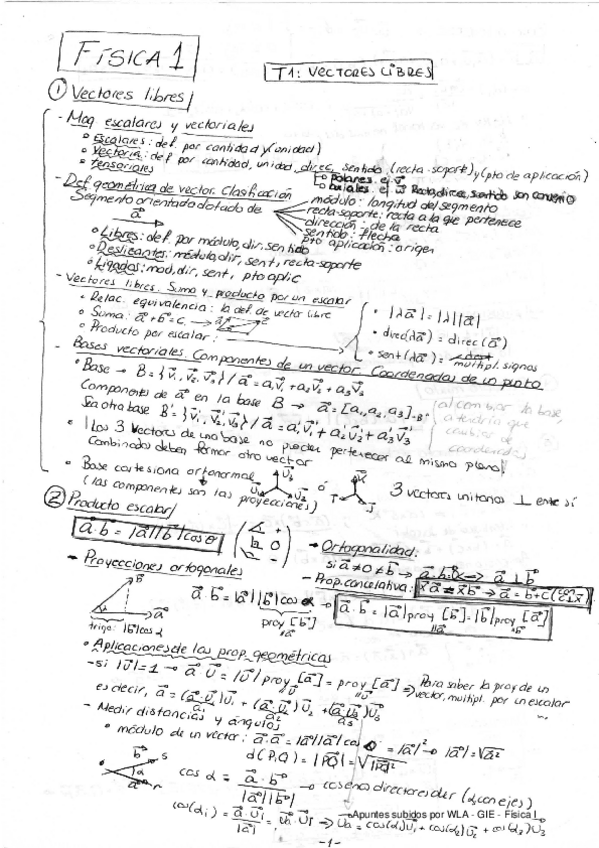 FÍSICA 1
T1: VECTORES LIBRES
① Vectores libres
- Mag escalares y vectoriales
• Escalares: def. por cantidad y (unidad)
• Vectorial: def por cantidad, unidad, direc, sentido, (recta-soporte) y (pto de aplicación)
• tensoriales
→ polares ej
→ axiales ej Recta, direc, sentido son convenio
- Def geométrica de vector. Clasificación
Segmento orientado dotado de
módulo: longitud del segmento
recta-soporte: recta a la que pertenece
dirección: de la recta
sentido: flecha
pto aplicación: origen
a⃗
• Libres: def. por módulo, dir, sentido
• Deslizantes: módulo, dir, sent, recta-soporte
• Ligados: mod, dir, sent, pto aplic
- Vectores libres. Suma y producto por un escalar
• Relac. equivalencia: la def. de vector libre
• Suma: a⃗ + b⃗ = c⃗
• Producto por escalar:
• |λa⃗| = |λ||a⃗|
• direc(λa⃗) = direc(a⃗)
• sent(λa⃗) = multipl. signos
- Bases vectoriales. Componentes de un vector. Coordenadas de un punto
• Base → B = {v⃗₁, v⃗₂, v⃗₃} / a⃗ = a₁v⃗₁ + a₂v⃗₂ + a₃v⃗₃
Componentes de a⃗ en la base B → a⃗ = [a₁, a₂, a₃]B
Sea otra base B' = {v⃗₁', v⃗₂', v⃗₃'} / a⃗ = a₁'v⃗₁' + a₂'v⃗₂' + a₃'v⃗₃'
al cambiar la base,
tendría que
cambiar de
coordenadas
• ¡Los 3 vectores de una base no pueden pertenecer al mismo plano!
Combinados deben formar otro vector
• Base cartesiana ortonormal
(las componentes son las proyecciones)
ó
3 vectores unitarios ⊥ entre sí
② Producto escalar
a⃗·b⃗ = |a⃗||b⃗|cos θ
→ Ortogonalidad:
si a⃗ ≠ 0 ≠ b⃗ → a⃗·b⃗ = 0 ↔ a⃗ ⊥ b⃗
- Prop. cancelativa:
- Proyecciones ortogonales
a⃗·b⃗ = |a⃗||b⃗|cos α → a⃗·b⃗ = |a⃗| proy [b⃗] = |b⃗| proy [a⃗]
proy [b⃗]
trigo: |b⃗|cos α
• Aplicaciones de las prop. geométricas
- si |u⃗| = 1 → a⃗·u⃗ = |u⃗| proy [a⃗] = proy [a⃗] ⇒ Para saber la proy de un
vector, multipl. por un escalar
es decir, a⃗ = (a⃗·u⃗₁)u⃗₁ + (a⃗·u⃗₂)u⃗₂ + (a⃗·u⃗₃)u⃗₃
a₁ a₂ a₃
- Medir distancias y ángulos
• módulo de un vector: a⃗·a⃗ = |a⃗||a⃗|cos 0 = |a⃗|² → |a⃗| = √a⃗²
d(P,Q) = |PQ⃗| = √PQ⃗²
cos α = a⃗·b⃗ / |a⃗||b⃗| → cosenos directores (α con ejes)
cos(αᵢ) = a⃗·u⃗ᵢ / |a⃗| = u⃗a·u⃗ᵢ ⇒ u⃗a = cos(α₁)u⃗₁ + cos(α₂)u⃗₂ + cos(α₃)u⃗₃
Apuntes subidos por WLA - GIE - Física I
-1-